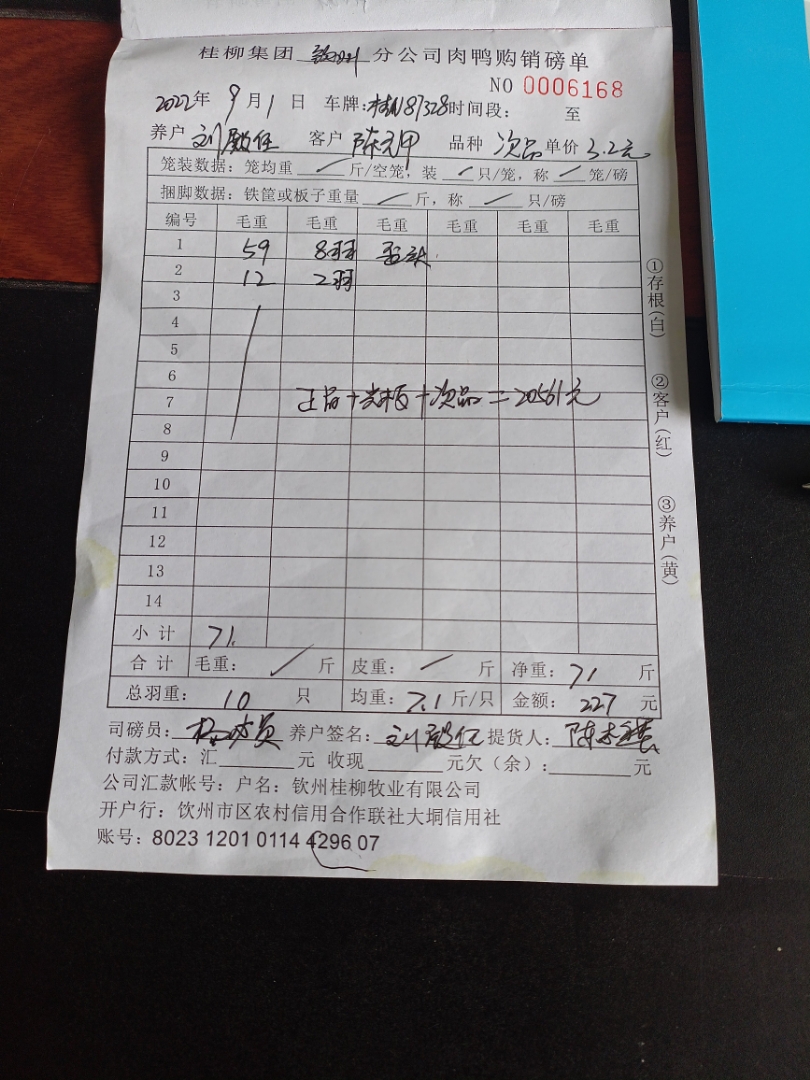 桂柳集团 钦州 分公司肉鸭购销磅单
NO 0006168
2022年 9月 1日 车牌:桂N87328时间段: 至
养户 刘殿任 客户 陈元甲 品种 次品 单价 3.2元
笼装数据:笼均重 / 斤/空笼,装 / 只/笼,称 / 笼/磅
捆脚数据:铁筐或板子重量 / 斤,称 / 只/磅
编号 毛重 毛重 毛重 毛重 毛重 毛重
1 59 8羽
2 12 2羽
3
4
5
6
7 正品+光板+次品=20561元
8
9
10
11
12
13
14
小计 71
合计 毛重: / 斤 皮重: / 斤 净重: 71 斤
总羽重: 10 只 均重: 7.1 斤/只 金额: 227 元
司磅员: 养户签名: 刘殿任 提货人: 陈
付款方式:汇 元 收现 元欠(余): 元
公司汇款帐号:户名:钦州桂柳牧业有限公司
开户行:饮州市区农村信用合作联社大垌信用社
账号:8023 1201 0114 4296 07
①存根(白)
②客户(红)
③养户(黄)